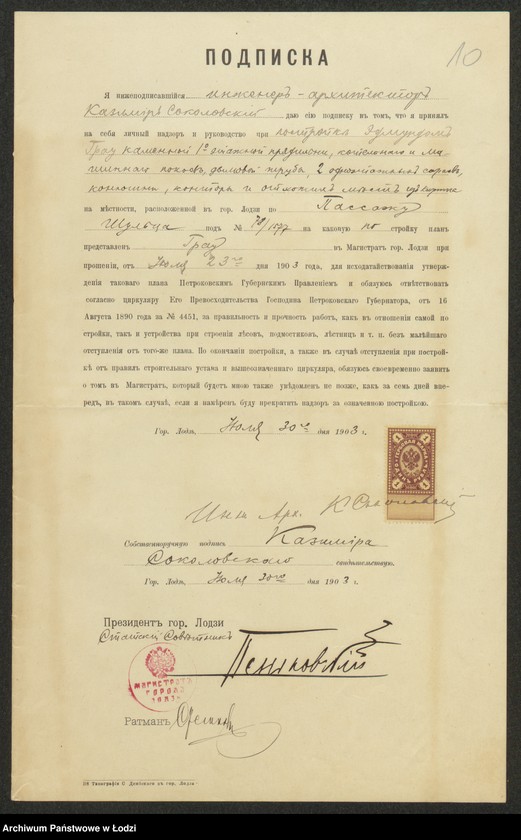 10
ПОДПИСКА
Я нижеподписавшійся инженеръ-архитекторъ
Казиміръ Соколовскій даю сію подписку въ томъ, что я принялъ
на себя личный надзоръ и руководство при постройкѣ Эдмундомъ
Грау каменной 1º этажной прядильни, котельнаго и ма-
шиннаго покоевъ, дымовой трубы, 2 одноэтажныхъ
конюшни, конторы и отхожихъ мѣстъ
на мѣстности, расположенной въ гор. Лодзи по Пассажу
Шульца подъ № на каковую по стройку планъ
представленъ Грау въ Магистратъ гор. Лодзи при
прошеніи, отъ Іюля 23го дня 1903 года, для исходатайствованія утверж-
денія таковаго плана Петроковскимъ Губернскимъ Правленіемъ и обязуюсь отвѣтствовать
согласно циркуляру Его Превосходительства Господина Петроковскаго Губернатора, отъ 16
Августа 1890 года за № 4451, за правильность и прочность работъ, какъ въ отношеніи самой по-
стройки, такъ и устройства при строеніи лѣсовъ, подмостковъ, лѣстницъ и т. п. безъ малѣйшаго
отступленія отъ того-же плана. По окончаніи постройки, а также въ случаѣ отступленія при построй-
кѣ отъ правилъ строительнаго устава и вышеозначеннаго циркуляра, обязуюсь своевременно заявить
о томъ въ Магистратъ, который будетъ мною также увѣдомленъ не позже, какъ за семь дней впе-
редъ, въ такомъ случаѣ, если я намѣренъ буду прекратить надзоръ за означенною постройкою.
Гор. Лодзь, Іюля 30го дня 1903 г.
Инж. Арх. К Соколовскій
Собственноручную подпись Казиміра
Соколовскаго свидѣтельствую.
Гор. Лодзь, Іюля 30го дня 1903 г.
Президентъ гор. Лодзи
Статскій Совѣтникъ
Пеньковскій
МАГИСТРАТЪ
ГОРОДА
ЛОДЗИ
Ратманъ
Archiwum Państwowe w Łodzi